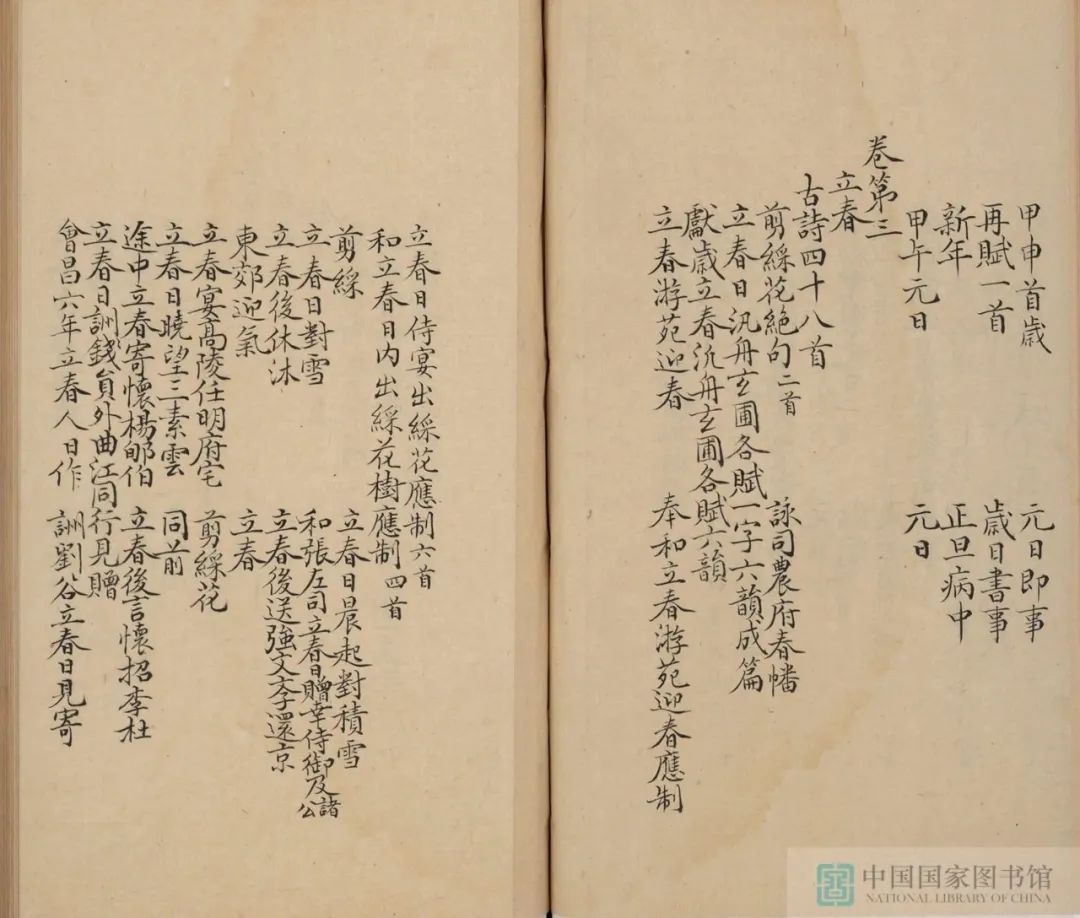 甲申首歲 元日即事
再賦一首 歲日書事
新年 正旦病中
甲午元日 元日
卷第三
立春
古詩四十八首
剪綵花絶句二首 詠司農府春幡
立春日汎舟玄圃各賦一字六韻成篇
獻歲立春汎舟玄圃各賦六韻
立春游苑迎春 奉和立春游苑迎春應制
立春日侍宴出綵花應制六首
和立春日内出綵花樹應制四首
剪綵 立春日晨起對積雪
立春日對雪 和張左司立春日贈韋侍御及諸公
立春後休沐 立春後送強文李還京
東郊迎氣 立春
立春宴高陵任明府宅 剪綵花
立春日曉望三素雲 同前
途中立春寄懷楊郇伯 立春後言懷招李杜
立春日詶錢員外曲江同行見贈
會昌六年立春人日作 詶劉谷立春日見寄
中国国家图书馆
NATIONAL LIBRARY OF CHINA